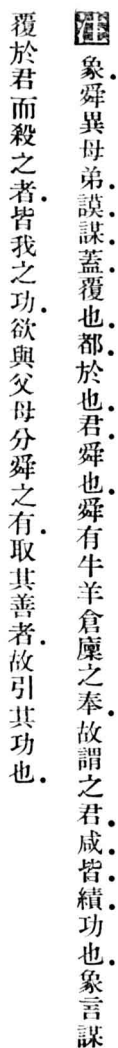 注象舜異母弟謨謀蓋覆也都於也君舜也舜有牛羊倉廩之奉故謂之君咸皆績功也象言謀
覆於君而殺之者皆我之功欲與父母分舜之有取其善者故引其功也